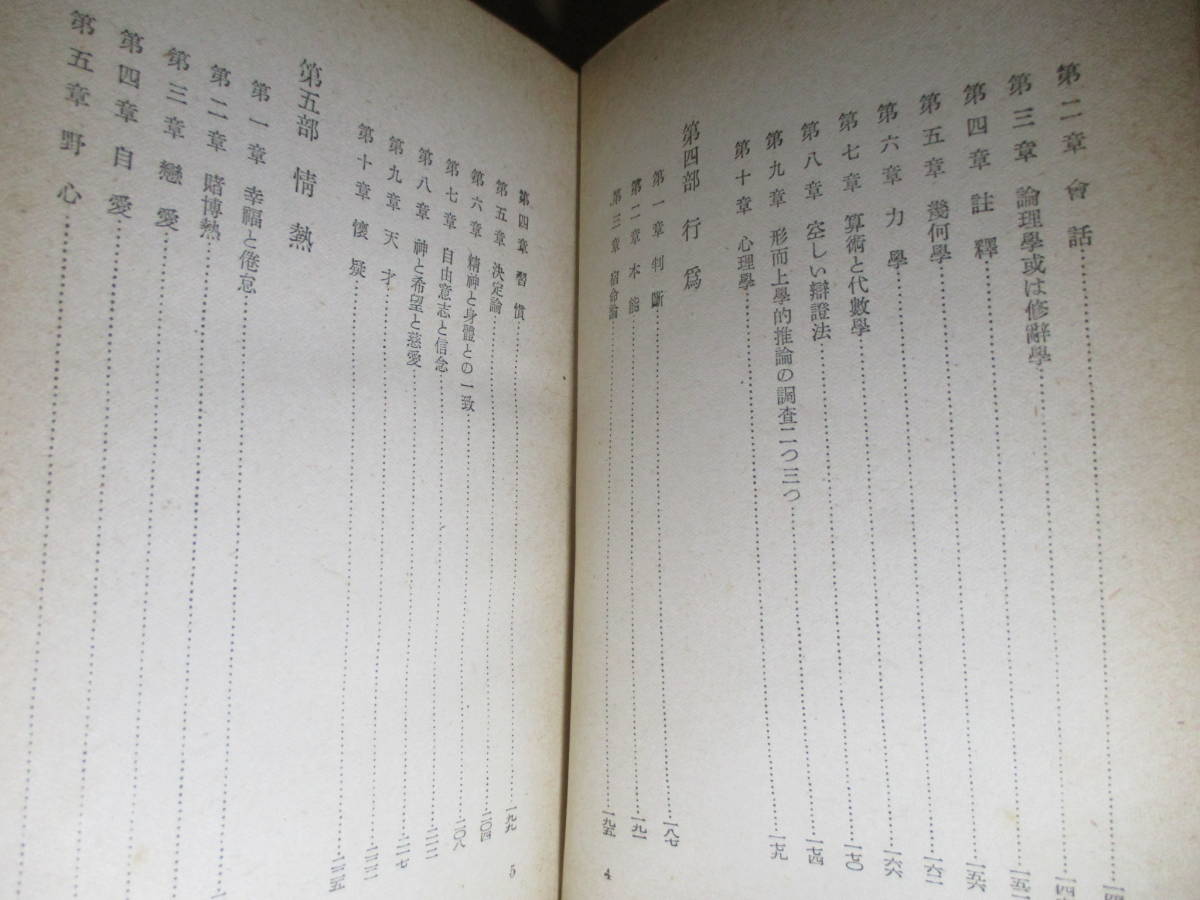 第二章 會話
第三章 論理學或は修辭學
第四章 註釋
第五章 幾何學……一五六
第六章 力學……一六二
第七章 算術と代數學……一六六
第八章 空しい辯證法……一七〇
第九章 形而上學的推論の調査二つ三つ……一七四
第十章 心理學……一七九
第四部 行爲
第一章 判斷……一八七
第二章 本能……一九一
第三章 宿命論……一九五
4
第四章 習慣……一九九
第五章 決定論……二〇四
第六章 精神と身體との一致……二〇八
第七章 自由意志と信念……二一二
第八章 神と希望と慈愛……二一七
第九章 天才……二二二
第十章 懷疑……二二五
第五部 情熱
第一章 幸福と倦怠
第二章 賭博熱
第三章 戀愛
第四章 自愛
第五章 野心
5